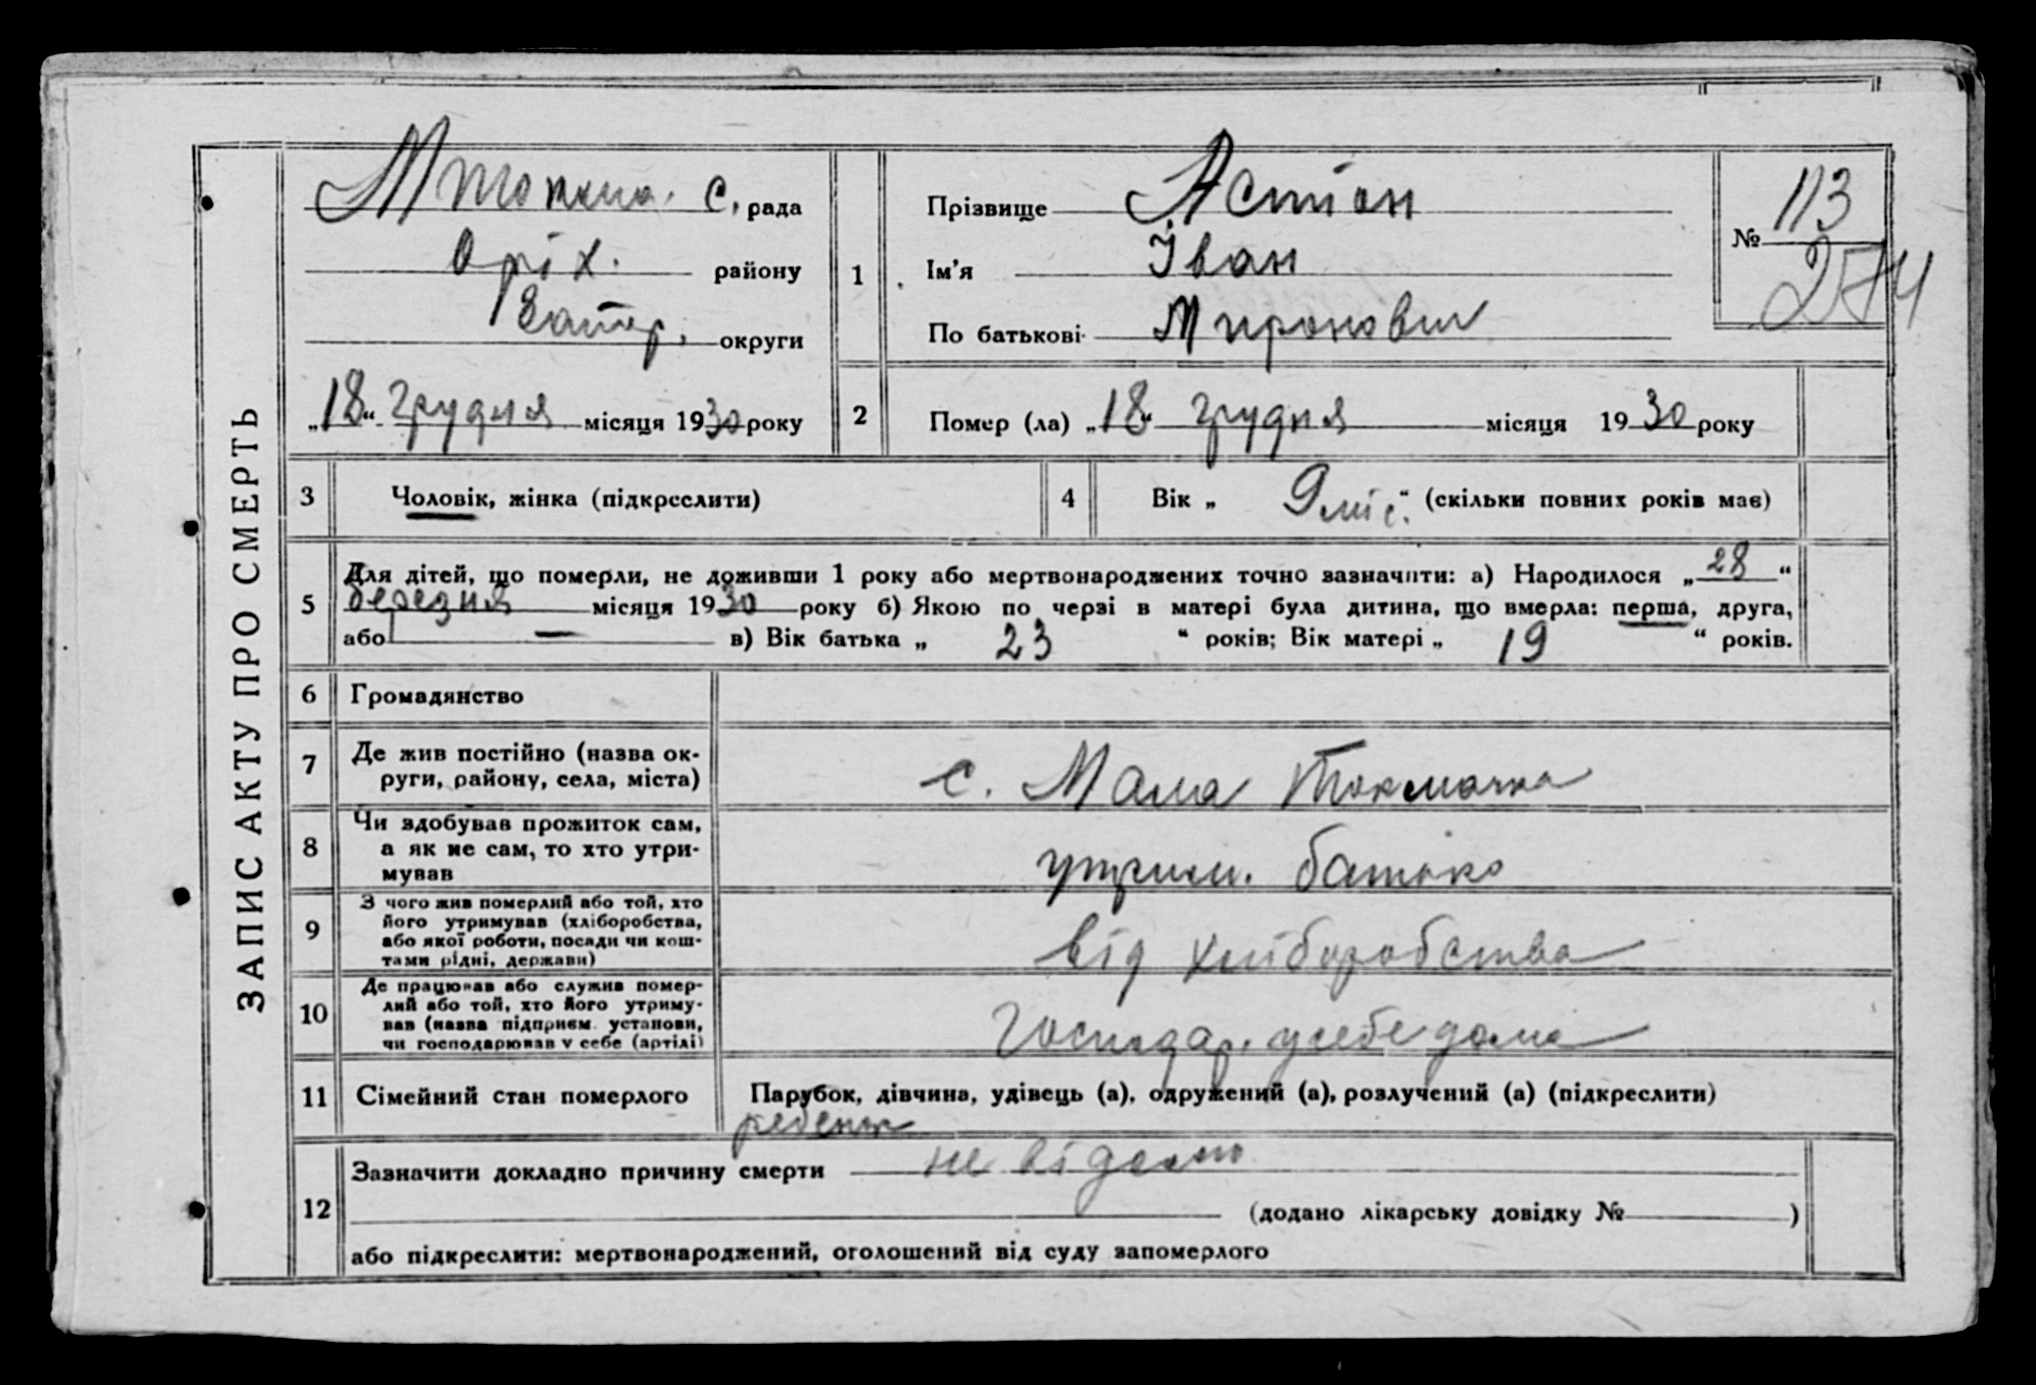 ЗАПИС АКТУ ПРО СМЕРТЬ
Мтокма. с. рада
Оріх. району
Запор. округи
„18“ грудня місяця 1930 року
1
Прізвище Астіон
Ім’я Іван
По батькові Миронович
№ 113
274
2 Помер (ла) „18“ грудня місяця 1930 року
3 Чоловік, жінка (підкреслити)
4 Вік „ 9 міс. “ (скільки повних років має)
5 Для дітей, що померли, не доживши 1 року або мертвонароджених точно зазначити: а) Народилося „28“
березня місяця 1930 року б) Якою по черзі в матері була дитина, що вмерла: перша, друга,
або — в) Вік батька „ 23 “ років; Вік матері „ 19 “ років.
6 Громадянство
7 Де жив постійно (назва ок-
руги, району, села, міста)
с. Мала Токмачка
8 Чи здобував прожиток сам,
а як не сам, то хто утри-
мував
утрим. батько
9 З чого жив померлий або той, хто
його утримував (хліборобства,
або якої роботи, посади чи кош-
тами рідні, держави)
від хліборобства
10 Де працював або служив помер-
лий або той, хто його утриму-
вав (назва підприєм. установи,
чи господарював у себе (артілі)
Господар. у себе дома
11 Сімейний стан померлого
Парубок, дівчина, удівець (а), одружений (а), розлучений (а) (підкреслити)
ребенок
12 Зазначити докладно причину смерти не відомо
(додано лікарську довідку № )
або підкреслити: мертвонароджений, оголошений від суду запомерлого